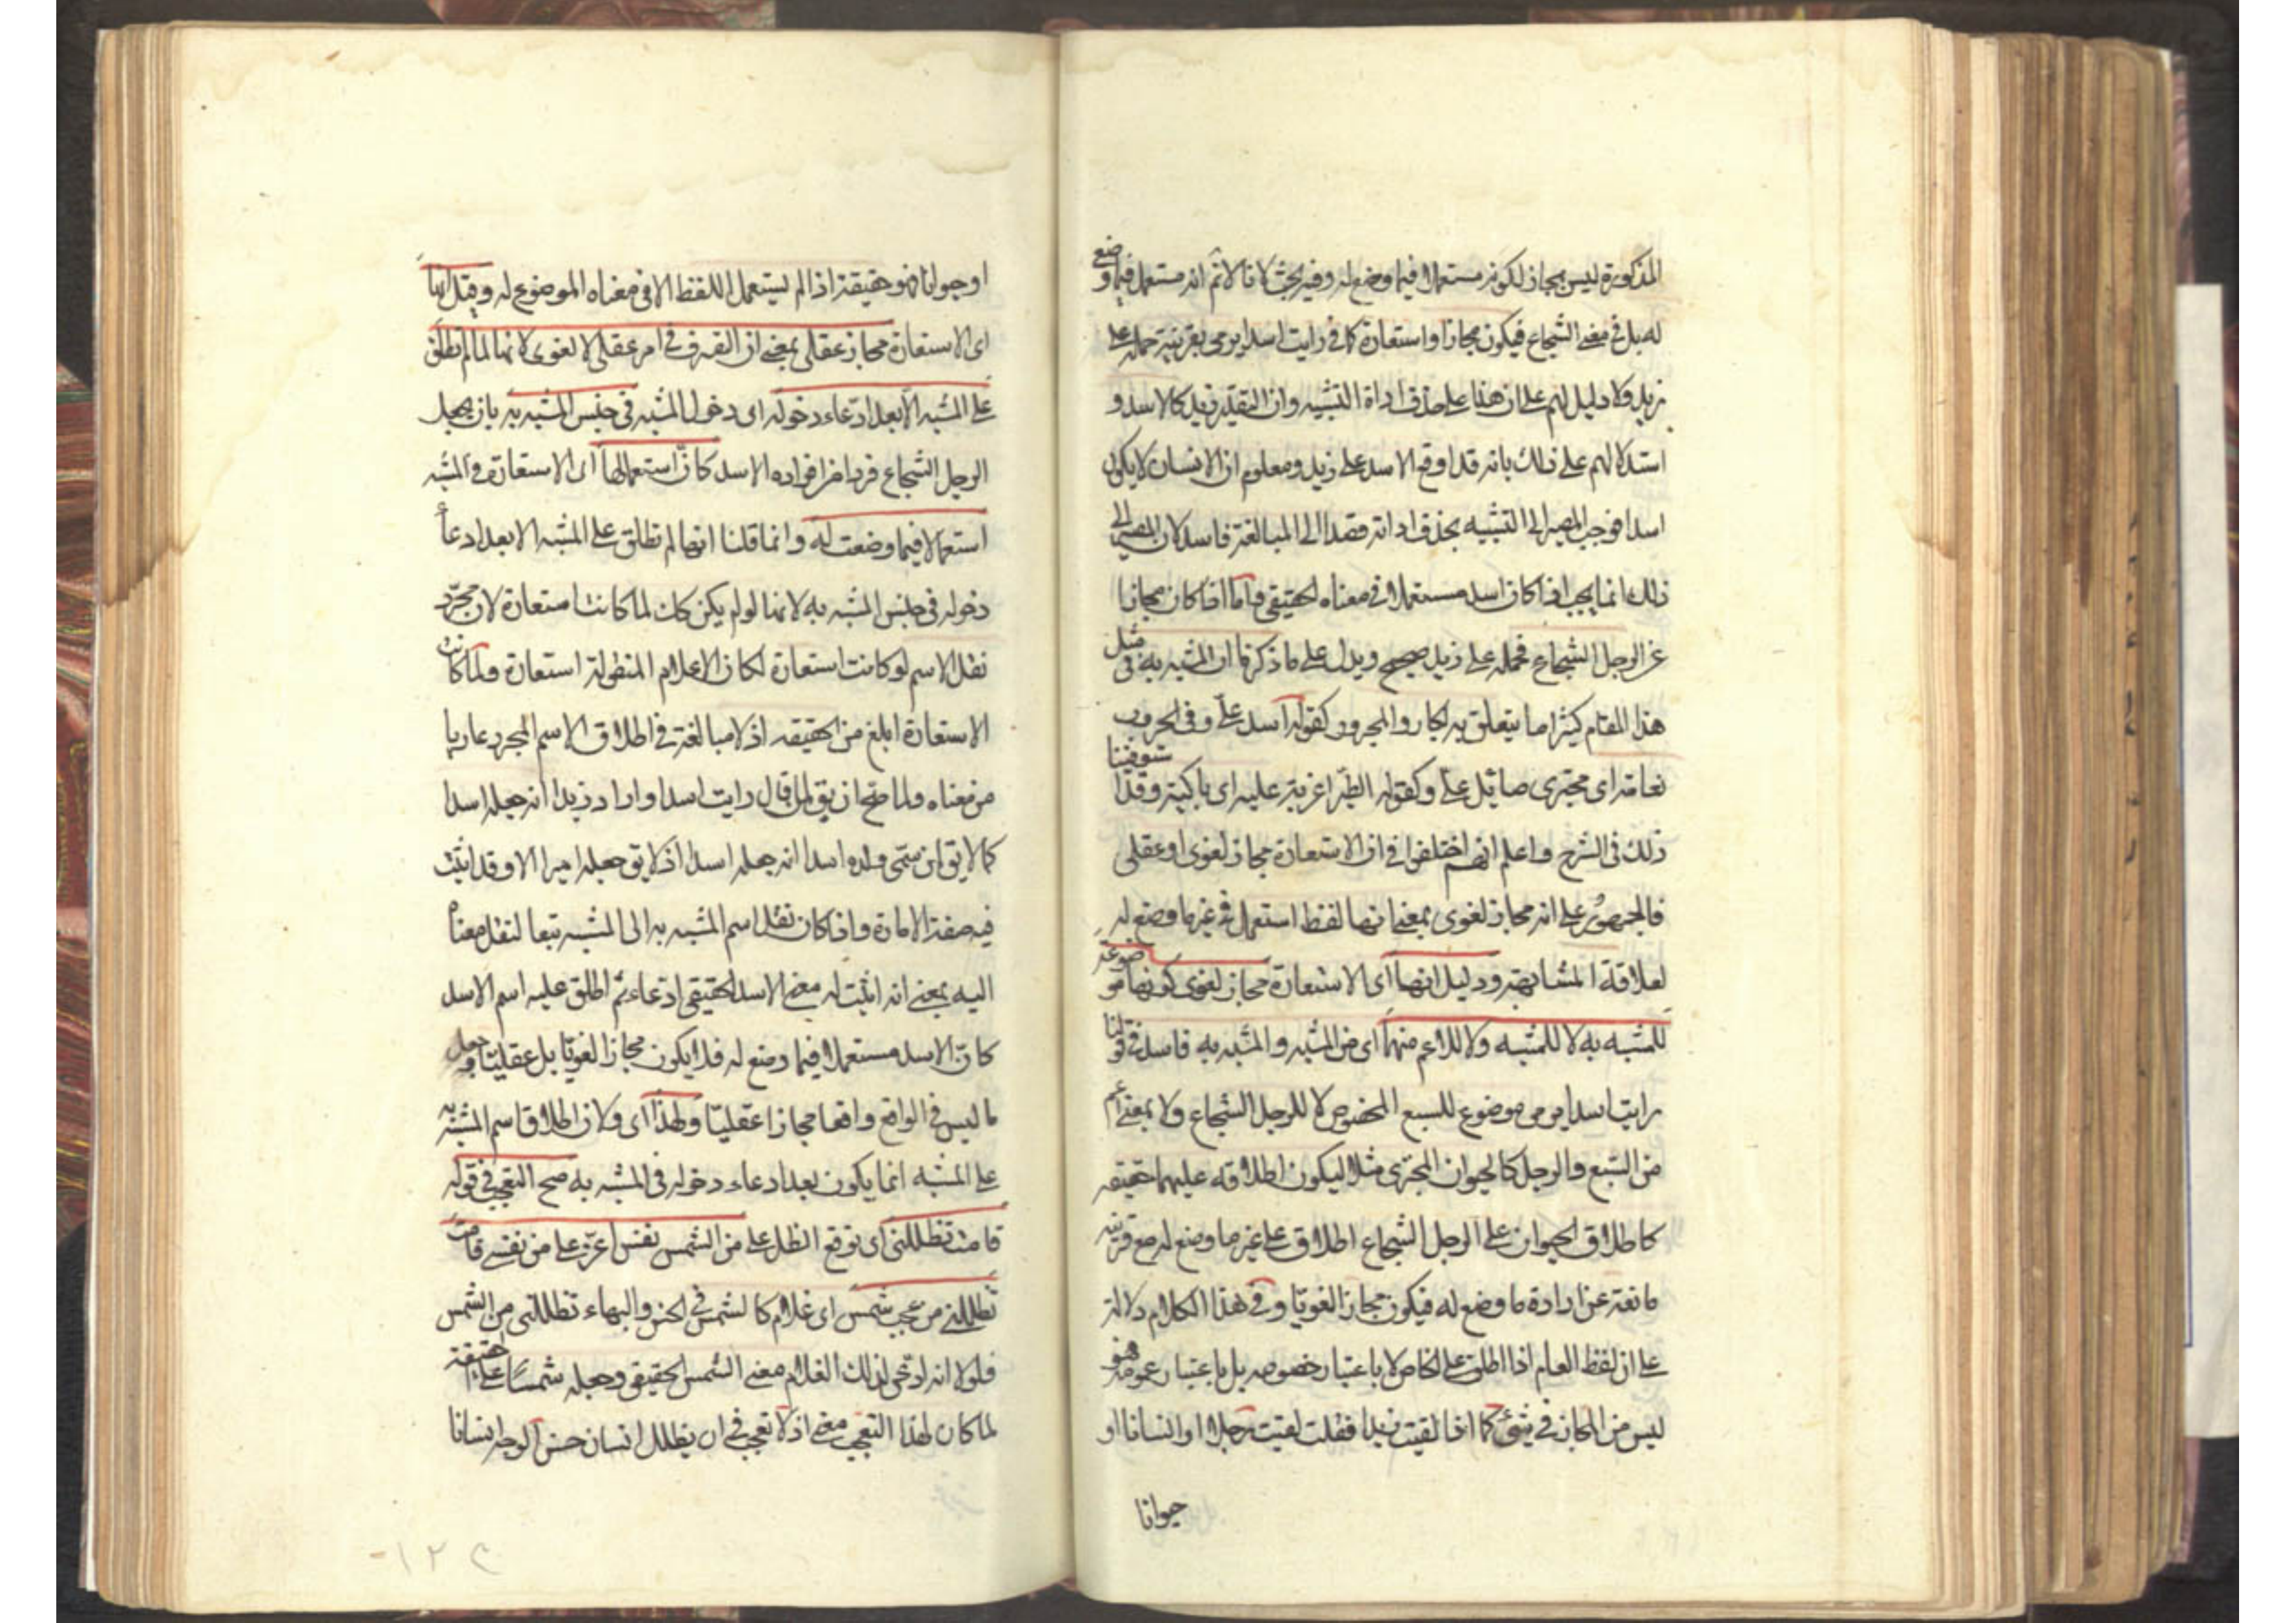 المذكورة ليس بمجاز لكونه مستعملا فيما وضع له وفيه بحث لانا لا نم انه مستعمل فيما وضع
له بل في معنى الشجاع فيكون مجازا واستعارة كما في رايت اسدا يرمي بقرينة حمله على
زيد ولا دليل لهم على ان هذا على حذف اداة التشبيه وان التقدير زيد كالاسد و
استدلالهم على ذلك بانه قد اوقع الاسد على زيد ومعلوم ان الانسان لا يكون
اسدا فوجب المصير الى التشبيه بحذف اداته قصدا الى المبالغة فاسد لان المصير الى
ذلك انما يجب اذا كان اسد مستعملا في معناه الحقيقي فاما اذا كان مجازا
عن الرجل الشجاع فحمله على زيد صحيح ويدل على ما ذكرنا ان المشبه به في مثل
هذا المقام كثيرا ما يتعلق به الجار والمجرور كقوله اسد علي وفي الحروب
نعامة اى مجترى صائل علي وكقوله الطير اغربة عليه اى باكية وقد استوفينا
ذلك في الشرح واعلم انهم اختلفوا في ان الاستعارة مجاز لغوى او عقلى
فالجمهور على انه مجاز لغوى بمعنى انها لفظ استعمل في غير ما وضع له
لعلاقة المشابهة ودليل انها اى الاستعارة مجاز لغوى كونها موضوعة
للمشبه به لا للمشبه ولا للاعم منهما اى من المشبه والمشبه به فاسد في قولنا
رايت اسدا يرمي موضوع للسبع المخصوص لا للرجل الشجاع ولا بمعنى اعم
من السبع والرجل كالحيوان المجترى مثلا ليكون اطلاقه عليهما حقيقه
كاطلاق الحيوان على الرجل الشجاع اطلاق على غير ما وضع له مع قرينه
مانعة عن ارادة ما وضع له فيكون مجازا لغويا وفي هذا الكلام دلالة
على ان لفظ العام اذا اطلق على الخاص لا باعتبار خصوصه بل باعتبار عمومه فهو
ليس من المجاز في شئ كما اذا لقيت زيدا فقلت لقيت رجلا او انسانا او
حيوانا
او حيوانا فهو حقيقة اذ لم يستعمل اللفظ الا في معناه الموضوع له وقيل انها
اى الاستعارة مجاز عقلى بمعنى ان التصرف في امر عقلى لا لغوى لانها لما لم تطلق
على المشبه الا بعد ادعاء دخوله اى دخول المشبه في جنس المشبه به بان يجعل
الرجل الشجاع فردا من افراده الاسد كان استعمالها اى الاستعارة في المشبه
استعمالا فيما وضعت له وانما قلنا انها لم تطلق على المشبه الا بعد ادعاء
دخوله في جنس المشبه به لانها لو لم يكن كك لما كانت استعارة لان مجرد
نقل الاسم لو كانت استعارة لكان الاعلام المنقولة استعارة ولما كانت
الاستعارة ابلغ من الحقيقه اذ لا مبالغة في اطلاق الاسم المجرد عاريا
من معناه ولما صح ان يق لمن قال رايت اسدا واراد زيدا انه جعله اسدا
كما لا يق لمن سمى ولده اسدا انه جعله اسدا اذ لا يق جعله اميرا الا وقد اثبت
فيه صفة الامارة واذا كان نقل اسم المشبه به الى المشبه تبعا لنقل معناه
اليه بمعنى انه اثبت له معنى الاسد الحقيقي ادعاء ثم اطلق عليه اسم الاسد
كان الاسد مستعملا فيما وضع له فلا يكون مجازا لغويا بل عقليا وجعل
ما ليس في الواقع واقعا مجازا عقليا ولهذا اى ولان اطلاق اسم المشبه به
على المشبه انما يكون بعد ادعاء دخوله في المشبه به صح التعجب في قوله
قامت تظللنى اى توقع الظل على من الشمس نفس اعز على من نفسي قامت
تظللنى من عجب شمس اى غلام كالشمس في الحسن والبهاء تظللنى من الشمس
فلولا انه ادعى لذلك الغلام معنى الشمس الحقيقي وجعله شمسا على الحقيقة
لما كان لهذا التعجب معنى اذ لا تعجب في ان يظلل انسان حسن الوجه انسانا